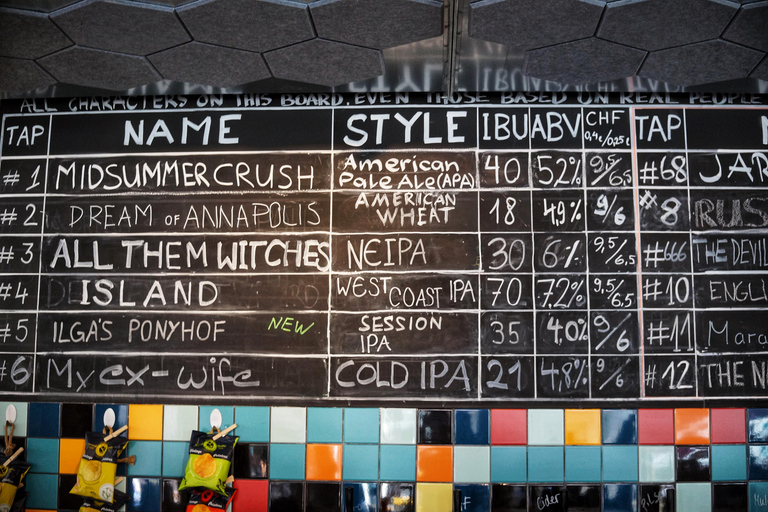 ALL CHARACTERS ON THIS BOARD, EVEN THOSE BASED ON REAL PEOPLE
TAP NAME STYLE IBU ABV CHF 0,4€/0,25€ TAP
#1 MIDSUMMER CRUSH American Pale Ale (APA) 40 5,2% 9,5/6,5 #68 JAR
#2 DREAM OF ANNAPOLIS AMERICAN WHEAT 18 4,9% 9/6 #8 RUS
#3 ALL THEM WITCHES NEIPA 30 6% 9,5/6,5 #666 THE DEVIL
#4 ISLAND WEST COAST IPA 70 7,2% 9,5/6,5 #10 ENGLI
#5 ILGA'S PONYHOF NEW SESSION IPA 35 4,0% 9/6 #11 Mara
#6 My ex-wife COLD IPA 21 4,8% 9/6 #12 THE N
Cider Pils